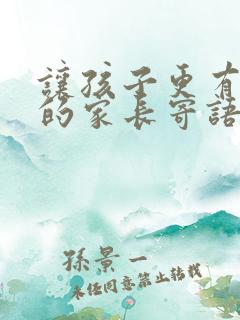 讓孩子更有
的家長寄語
孫景一
未經同意禁止轉載